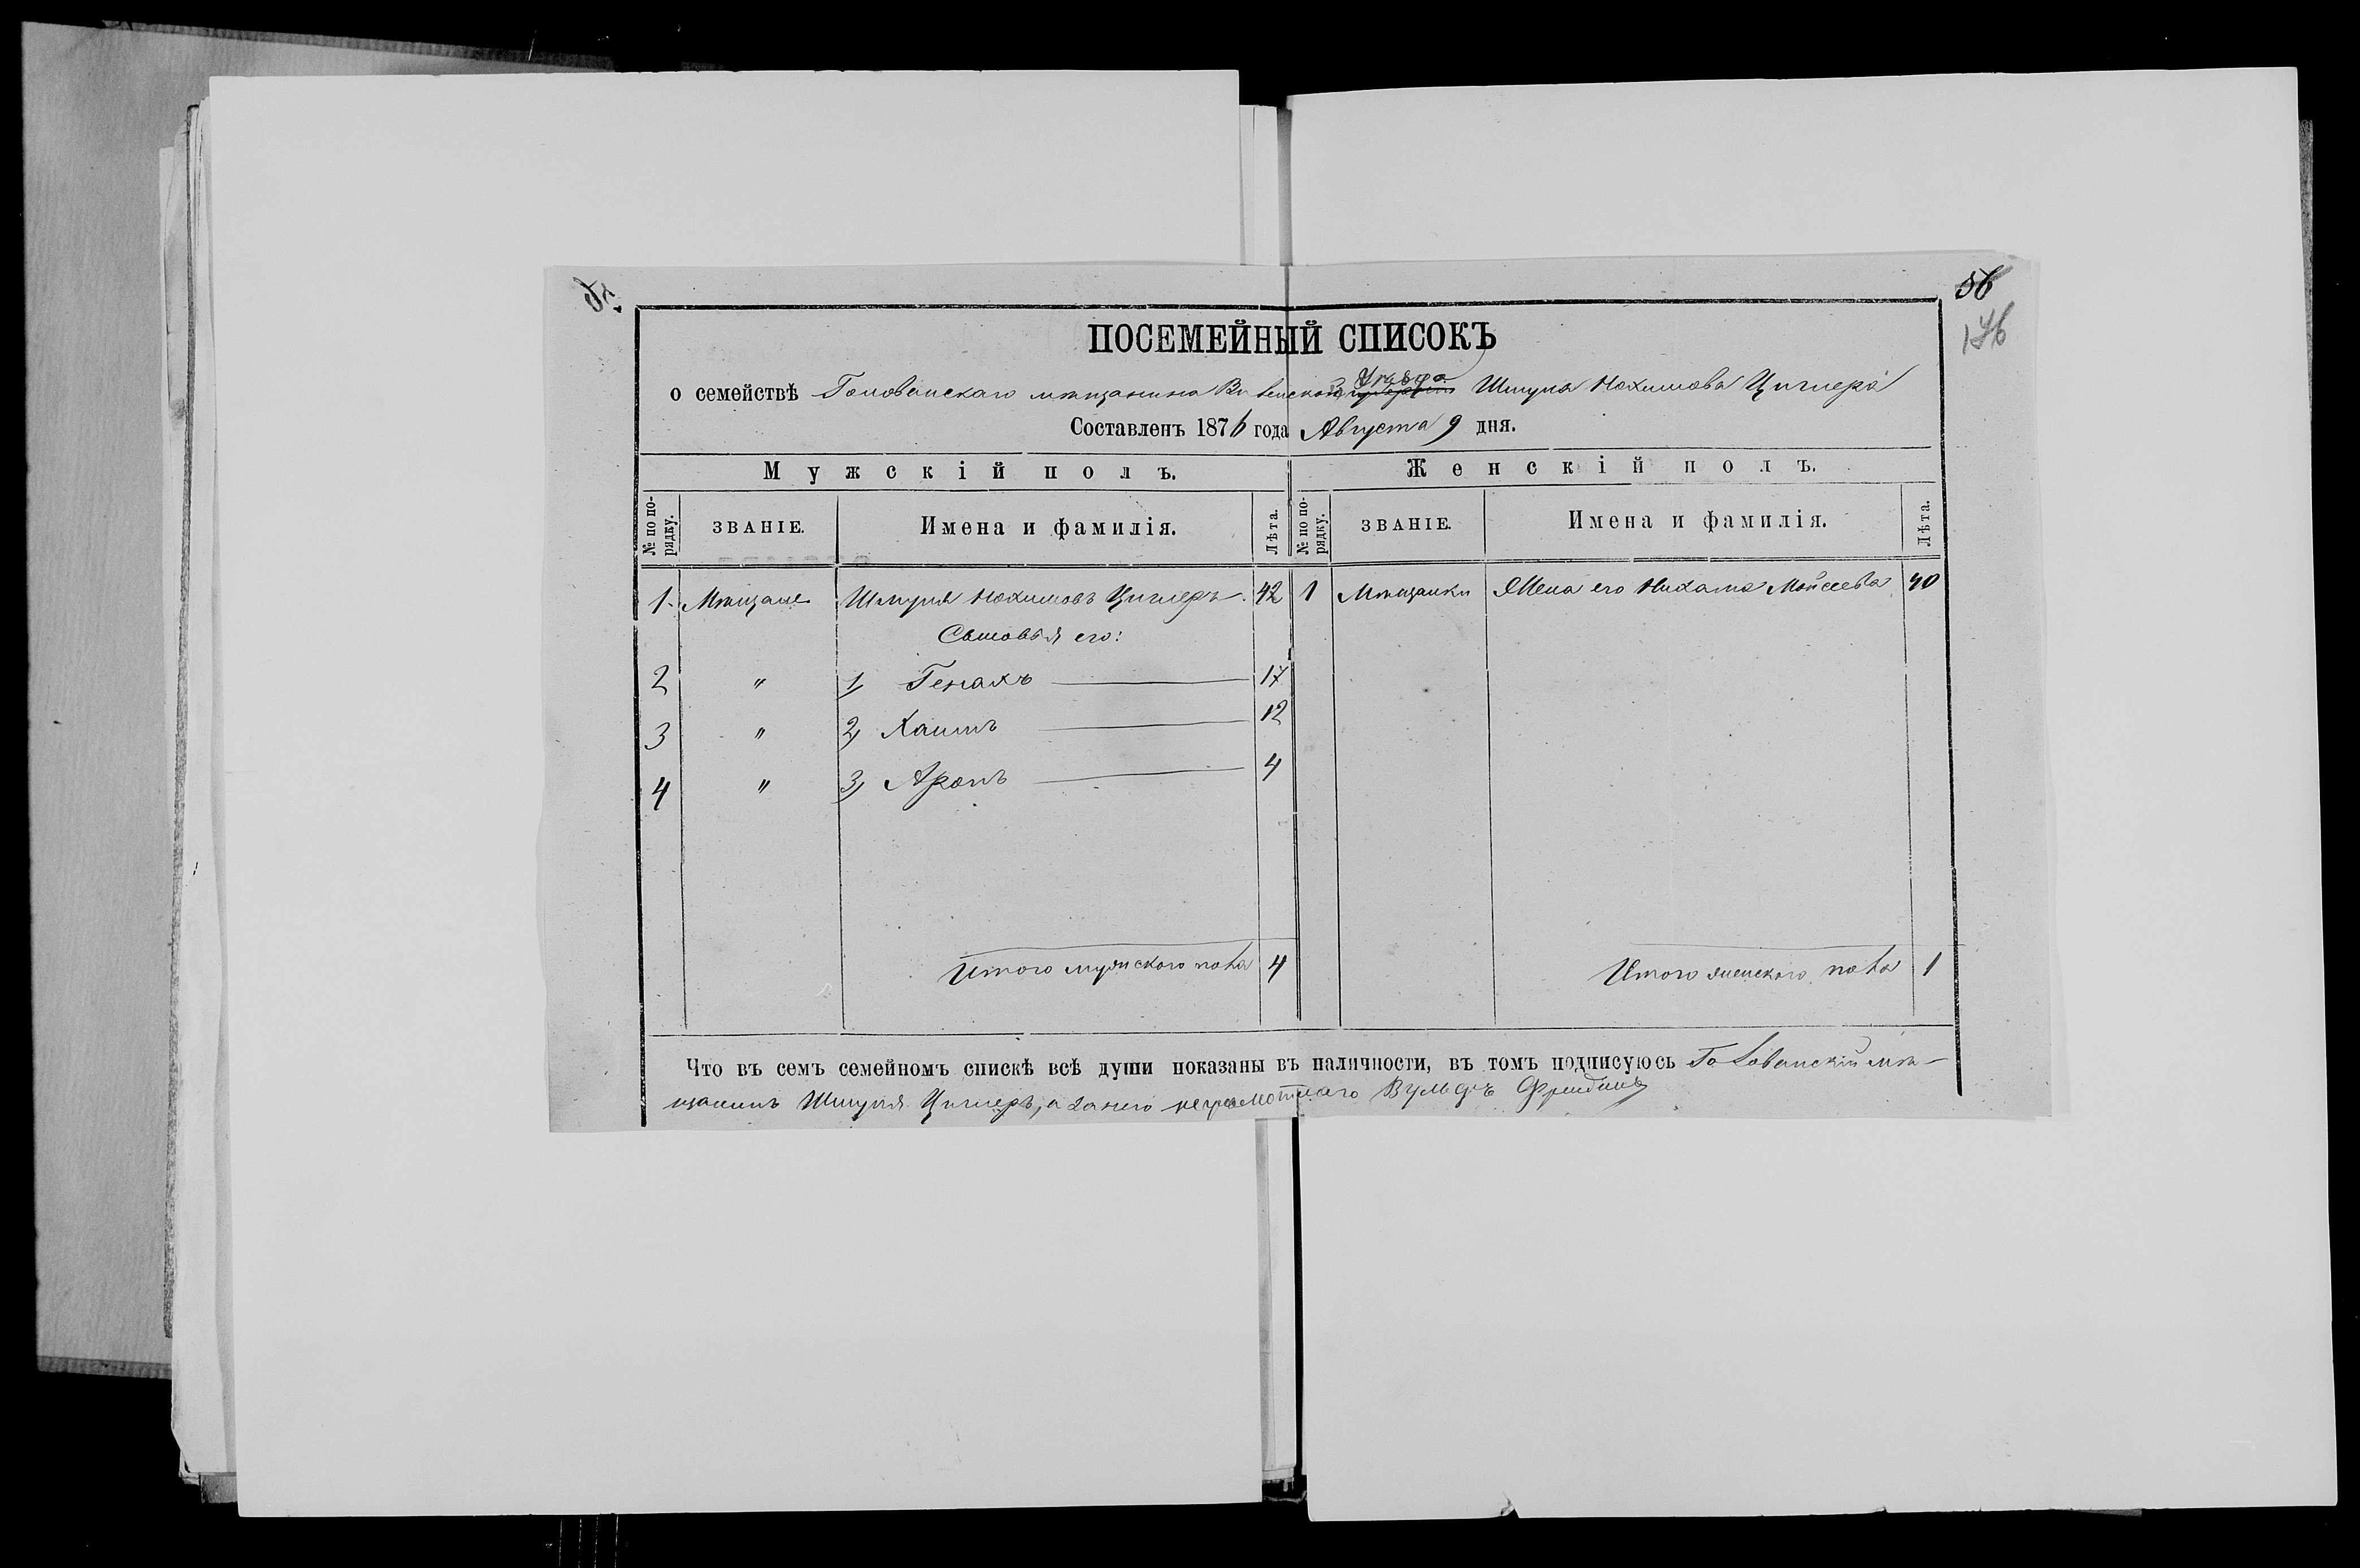 56
146
ПОСЕМЕЙНЫЙ СПИСОКЪ
Уѣзда
о семействѣ Головскаго мѣщанина Шмуля Нохимова Циглера
Составленъ 1876 года Августа 9 дня.
Мужскій полъ. Женскій полъ.
№ по порядку. ЗВАНІЕ. Имена и фамилія. Лѣта. № по порядку. ЗВАНІЕ. Имена и фамилія. Лѣта.
1. Мѣщане Шмуля Нохимовъ Циглеръ 42 1 Мѣщанки Жена его Нихама Мойсеева 40
Сыновья его:
2 " 1, Генахъ 17
3 " 2, Хаимъ 12
4 " 3, Аронъ 4
Итого мужского пола 4 Итого женского пола 1
Что въ семъ семейномъ спискѣ всѣ души показаны въ наличности, въ томъ подписуюсь мѣ-
щанинъ Шмуля Циглеръ, а за него неграмотнаго Вульфъ Фридманъ